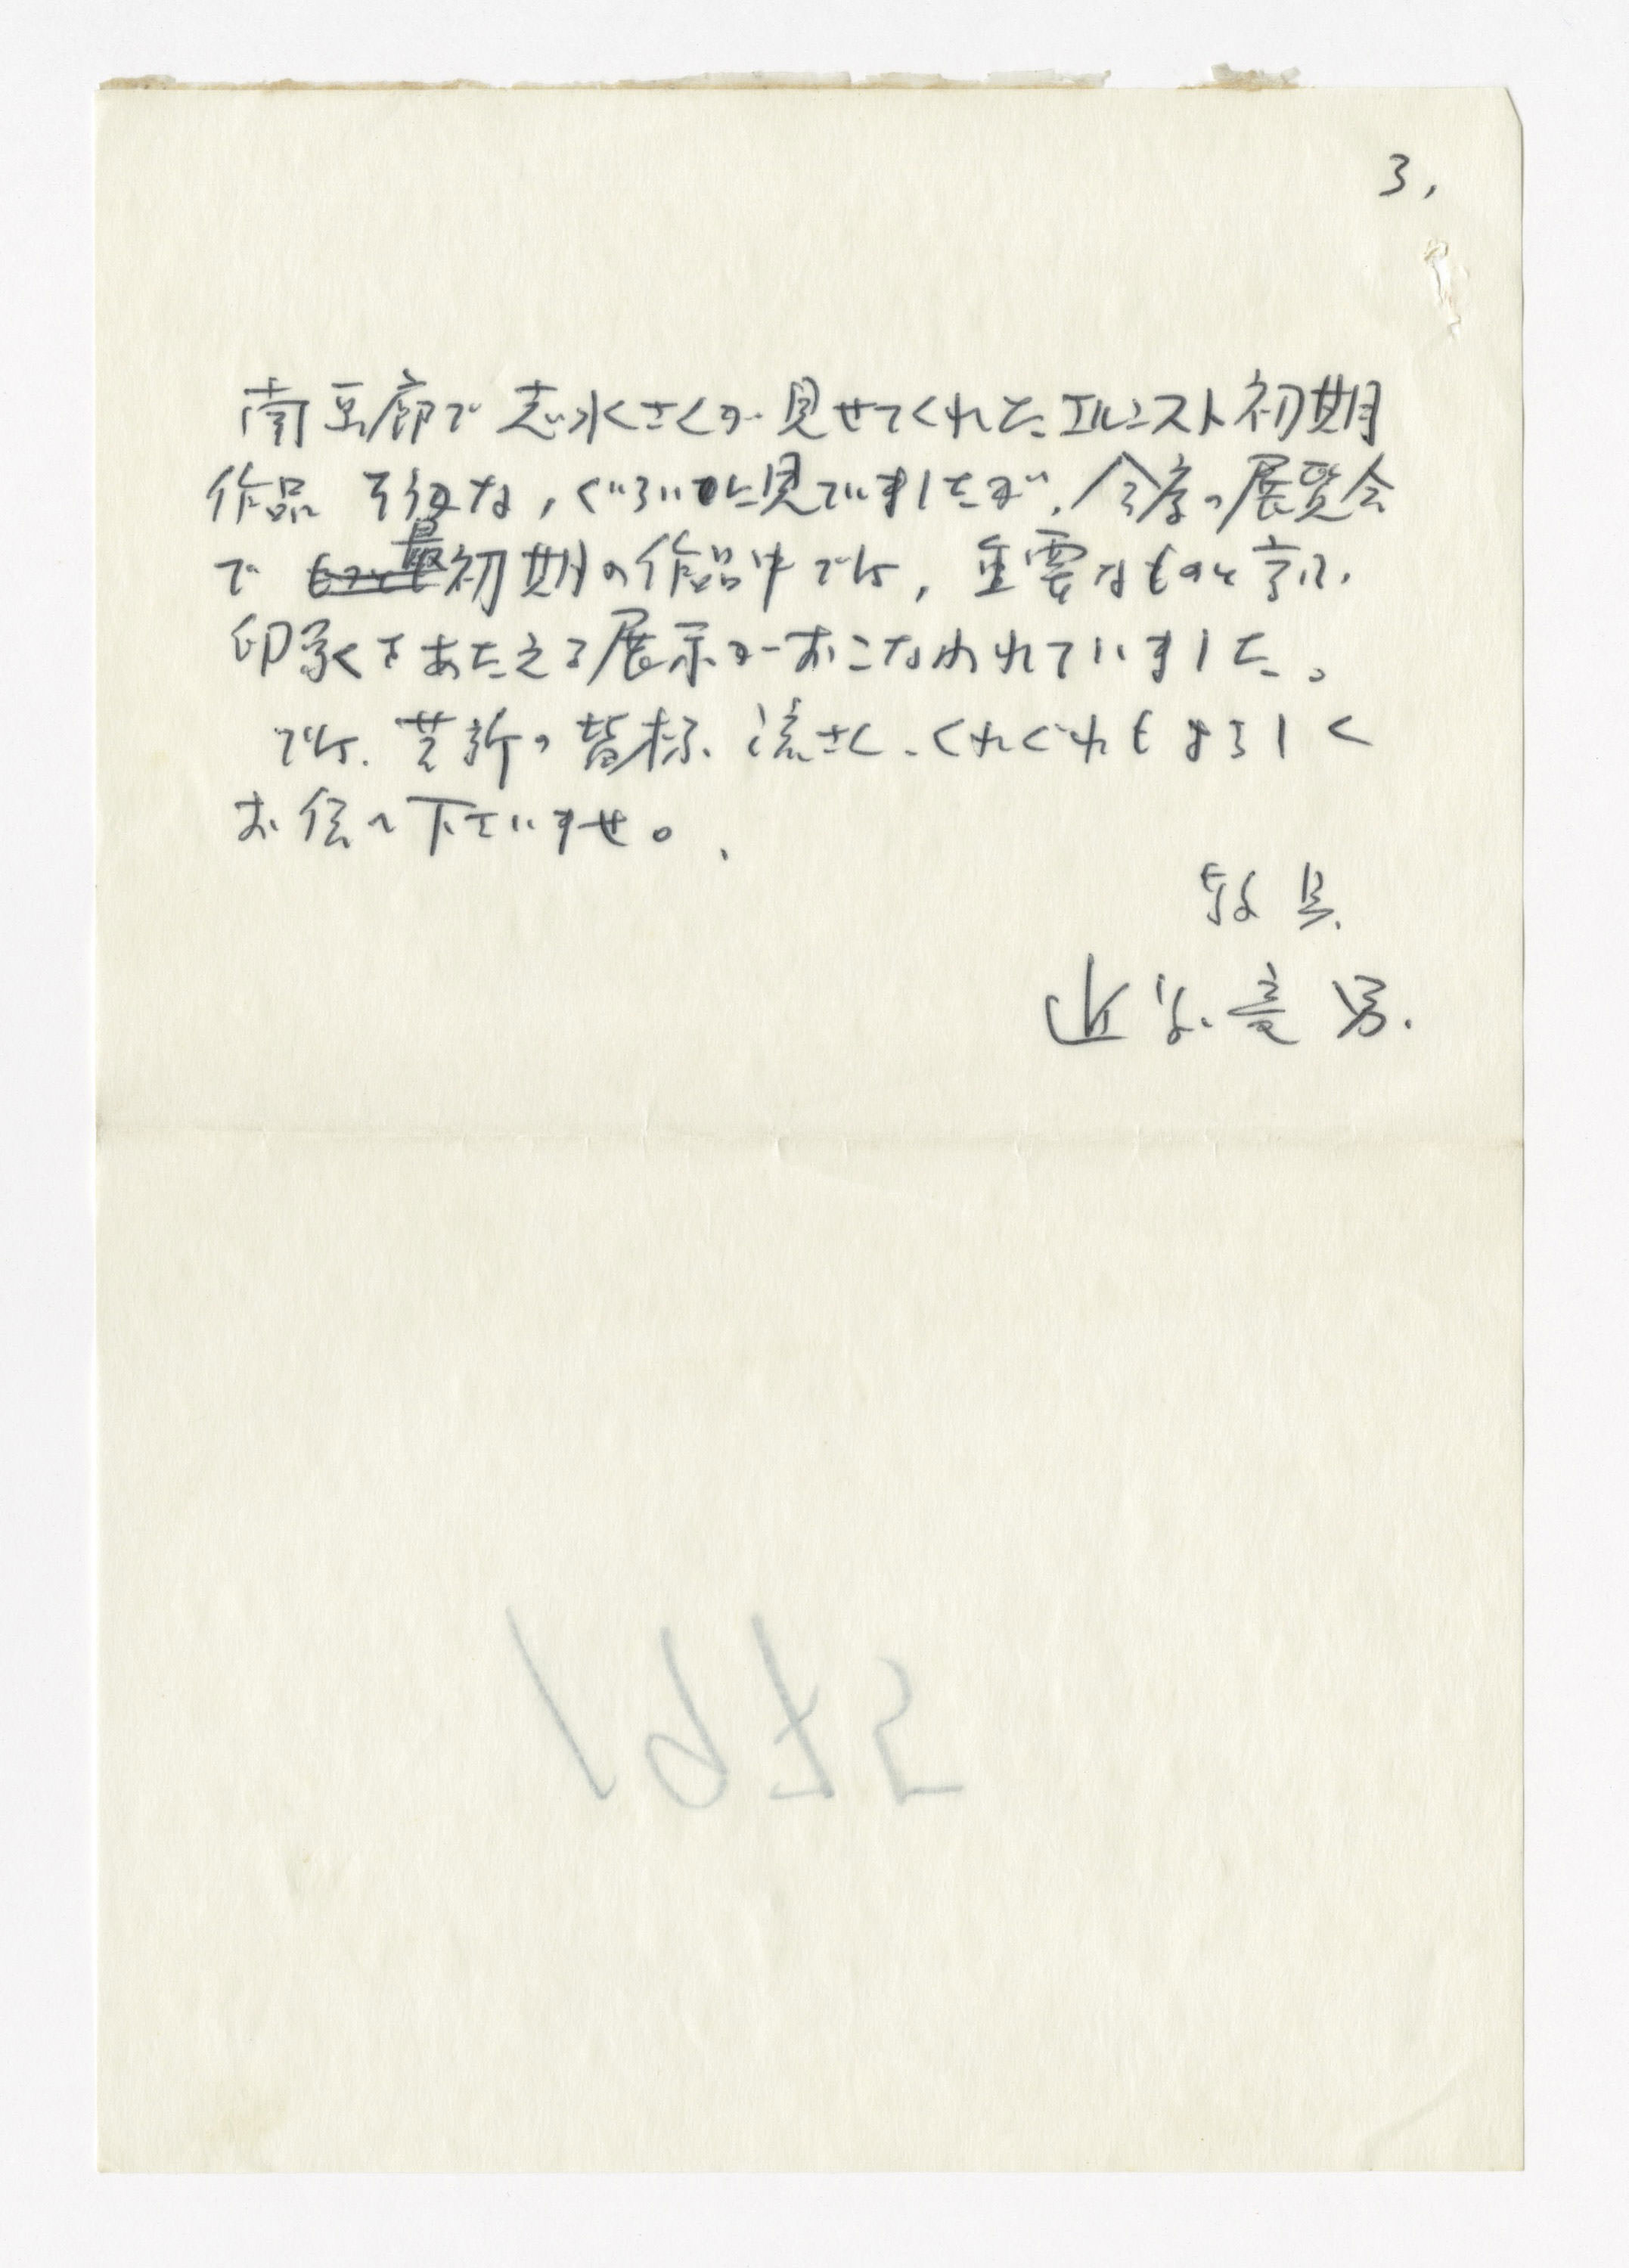 3,
南画廊で志水さんが見せてくれたエルンスト初期
作品 な、ぐらいに見ていましたが、今度の展覧会
で 最初期の作品中では、重要なものと言う
印象をあたえる展示がおこなわれていました。
では、芝新の皆様、湊さん、くれぐれもよろしく
お伝へ下さいませ。
敬具、
近 竜男、